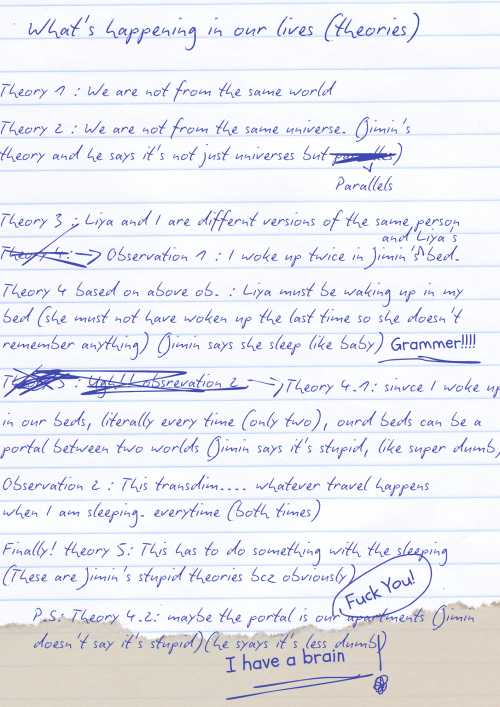 What's happening in our lives (theories)
Theory 1 : We are not from the same world
Theory 2 : We are not from the same universe. (Jimin's
theory and he says it's not just universes but paralles)
Parallels
Theory 3 : Liya and I are differnt versions of the same person
and Liya's
Theory 4: Observation 1 : I woke up twice in Jimin's bed.
Theory 4 based on above ob. : Liya must be waking up in my
bed (she must not have woken up the last time so she doesn't
remember anything) (Jimin says she sleep like baby) Grammer!!!!
Theory 5 : Ugh!! obsrevation 2 Theory 4.1: sinvce I woke up
in our beds, literally every time (only two), ourd beds can be a
portal between two worlds (Jimin says it's stupid, like super dumb)
Observation 2 : This transdim.... whatever travel happens
when I am sleeping. everytime (both times)
Finally! theory 5: This has to do something with the sleeping
(These are Jimin's stupid theories bcz obviously)
Fuck You!
P.S: Theory 4.2: maybe the portal is our apartments (Jimin
doesn't say it's stupid)(he syays it's less dumb)
I have a brain